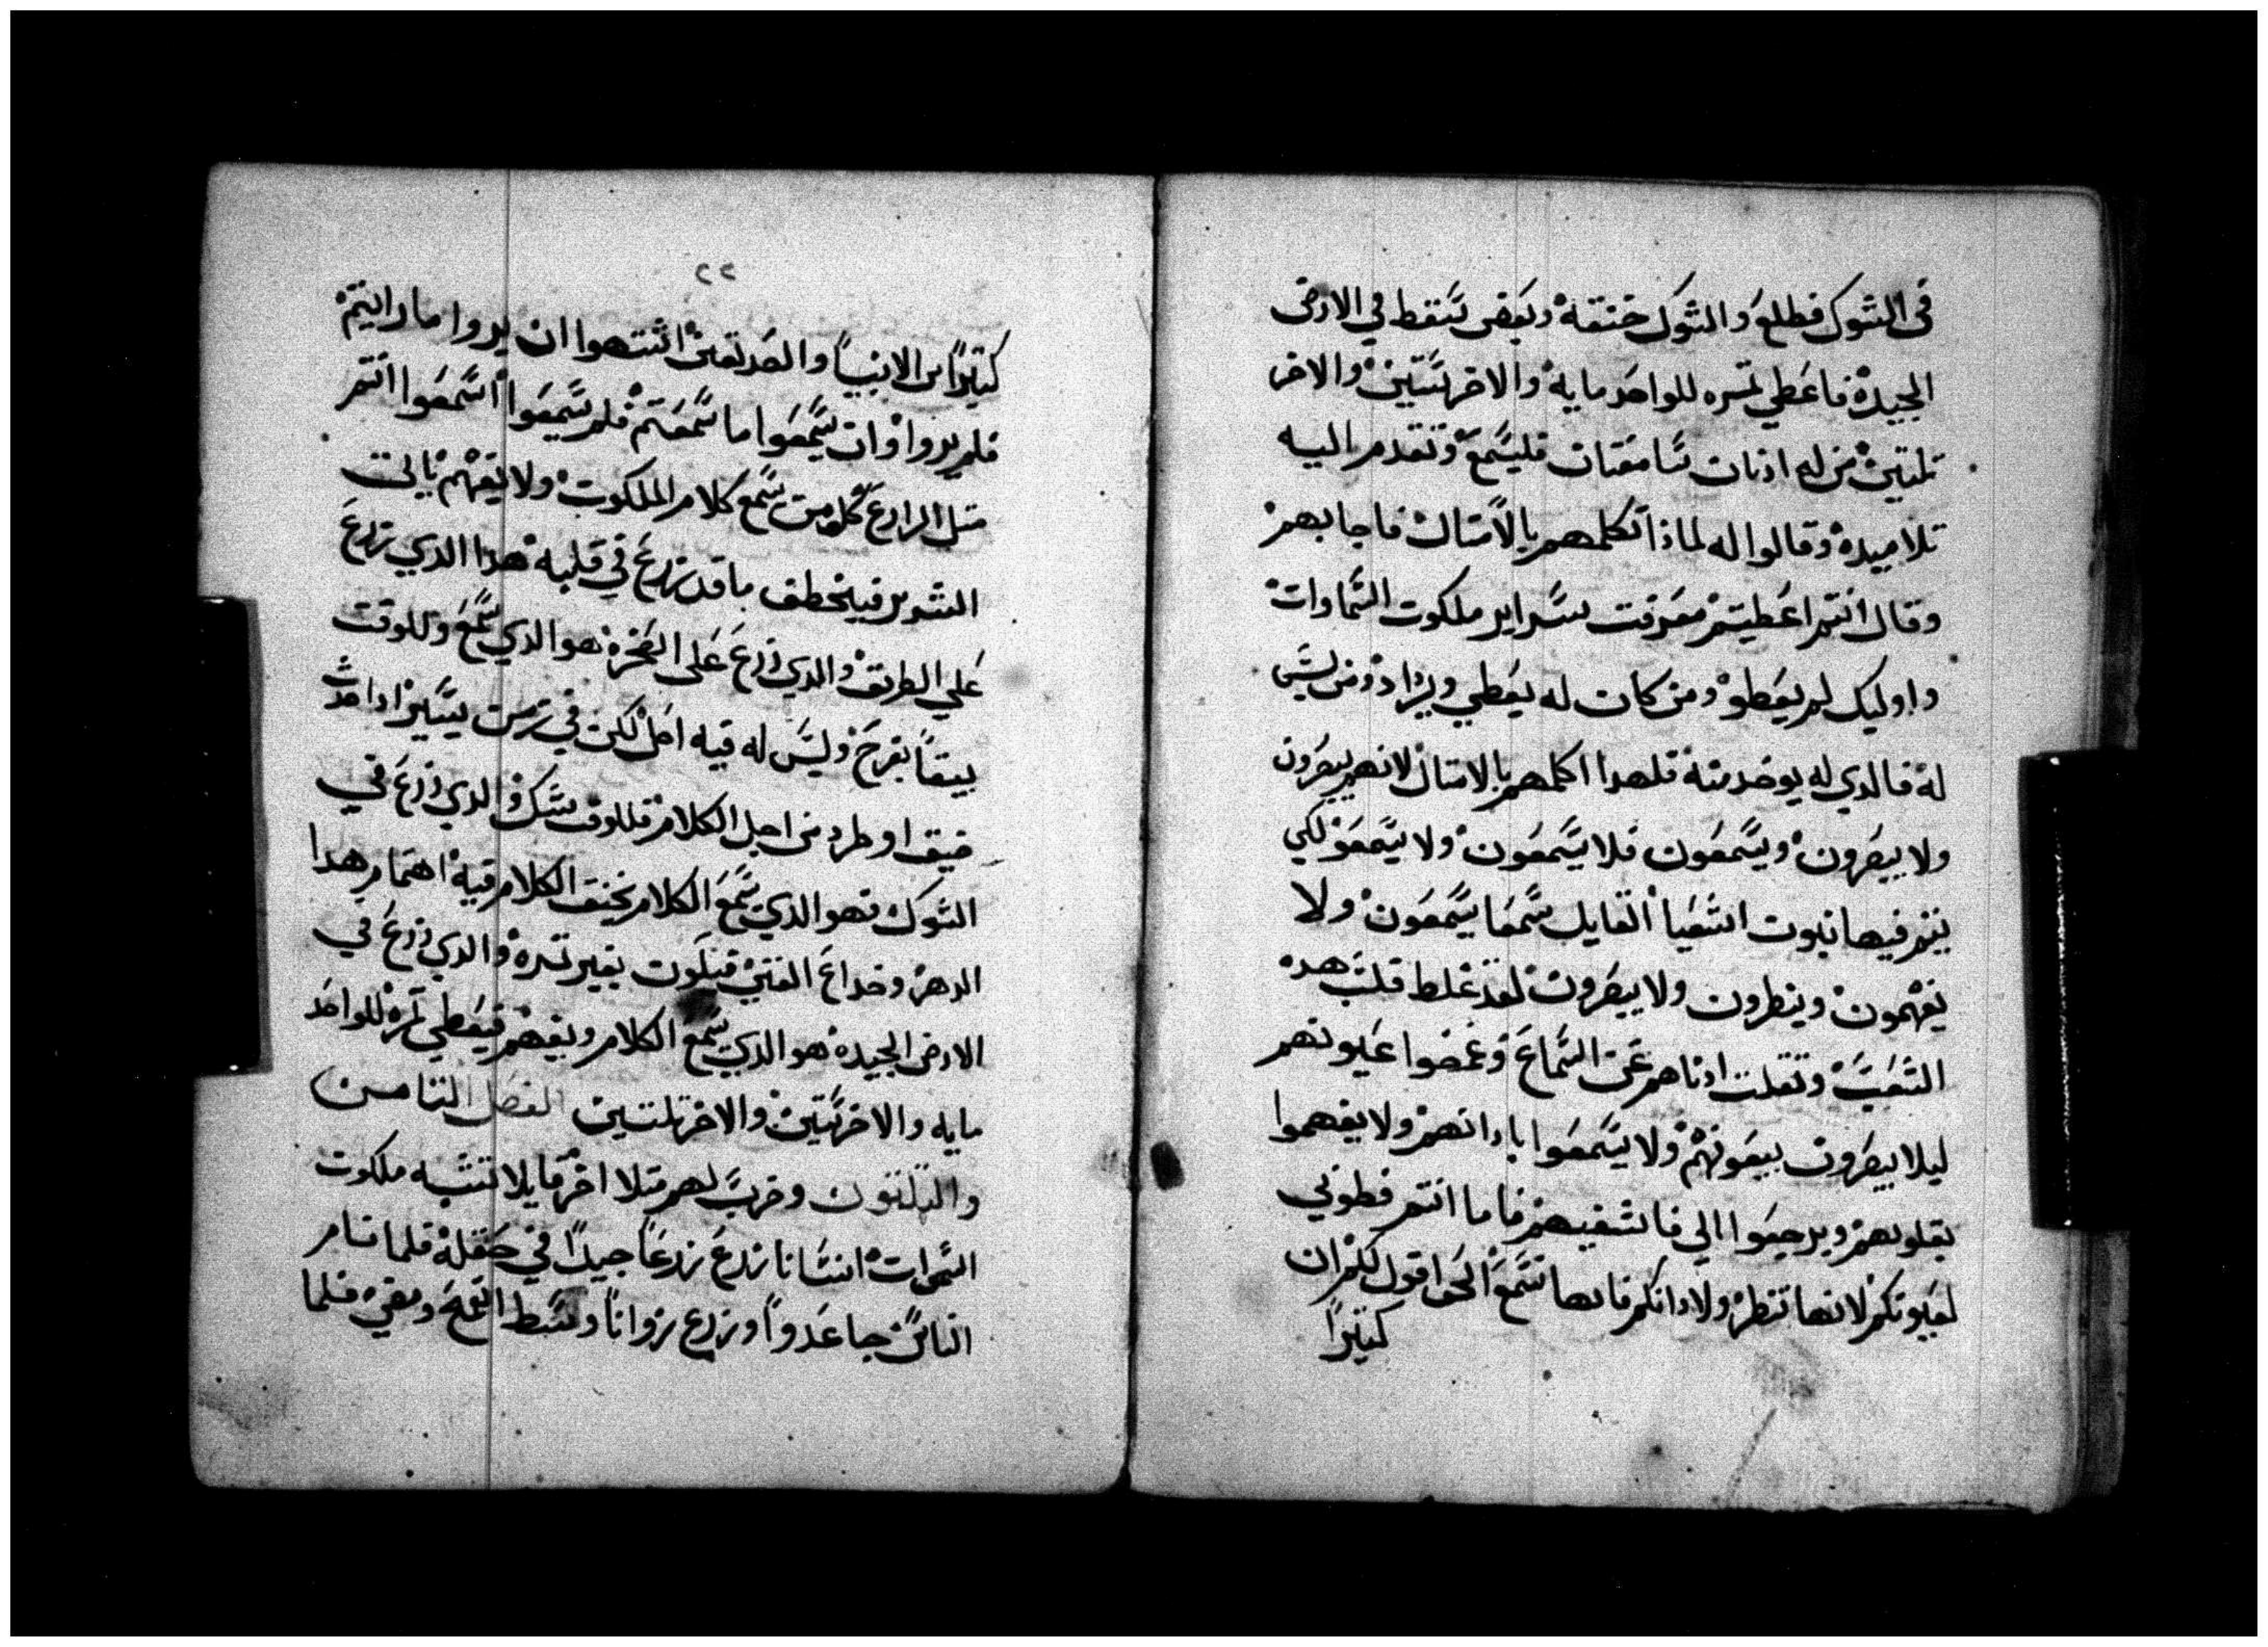 في الشوك فطلع والشوك خنقه وبعض سقط في الارض
الجيده فاعطي تمره للواحد مايه والاخر ستين والاخر
تلتين من له ادنان سامعتان فليسمع وتقدم اليه
تلاميده وقالوا له لماذا تكلمهم بالامتال فاجابهم
وقال انتم اعطيتم معرفت سراير ملكوت السماوات
واوليك لم يعطو ومن كان له يعطي ويزاد ومن ليس
له فالدي له يوخد منه فلهدا اكلمهم بالامتال لانهم يبصرون
ولا يبصرون ويسمعون فلا يسمعون ولا يفهمون لكي
يتم فيها نبوت اشعيا القايل سمعا يسمعون ولا
يفهمون وينطرون ولا يبصرون لقد غلط قلب هده
الشعب وتقلت ادناهم عن السماع وغمضوا عيونهم
ليلا يبصرون بيعونهم ولا يسمعوا باادانهم ولا يفهموا
بقلوبهم ويرجعوا الي فاشفيهم فاما انتم فطوبي
لعيونكم لانها تنظر ولادانكم فانها تسمع الحق اقول لكم ان
كتيرا
٢٢
كتيرا من الانبيا والصديقين اشتهوا ان يروا ما رايتم
فلم يروا وان يسمعوا ما سمعتم فلم يسمعوا اسمعوا انتم
متل الزارع كلمن يسمع كلام الملكوت ولا يفهم ياتي
الشرير فيخطف ما قد زرع في قلبه هدا الدي زرع
علي الطريق والدي زرع علي الصخره هو الدي يسمع وللوقت
يقبله بفرح وليس له فيه اصل لكن في زمن يسير ادا حدث
ضيق او طرد من اجل الكلام فللوقت يشك والدي زرع في
الشوك فهو الدي يسمع الكلام يخنق الكلام فيه اهتمام هدا
الدهر وخداع الغني فيكون بغير تمره والدي زرع في
الارض الجيده هو الدي يسمع الكلام ويفهم فيعطي تمره للواحد
مايه والاخر ستين والاخر تلتين الفصل التامن
والتلتون وضرب لهم متلا اخر قايلا تشبه ملكوت
السموات انسانا زرع زرعا جيدا في حقله فلما نام
الناس جا عدوا وزرع زوانا وسط القمح ومضي فلما